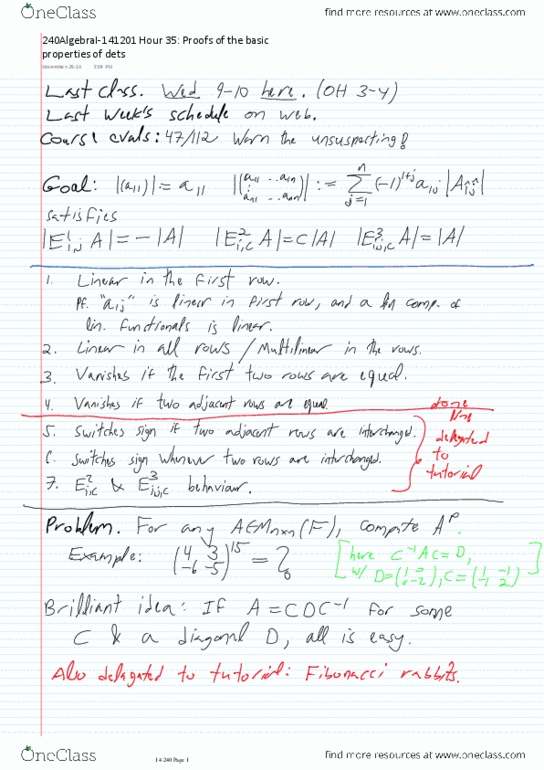 OneClass find more resources at www.oneclass.com
240AlgebraI-141201 Hour 35: Proofs of the basic
properties of dets
November-25-14
Last class. Wed 9-10 here. (OH 3-4)
Last week's schedule on web.
Course evals: 47/112 Warn the unsuspecting!
Goal: |(a₁₁)| = a₁₁ |(a₁₁ ... a₁ₙ ⋮ aₙ₁ ... aₙₙ)| := Σⱼ₌₁ⁿ (-1)¹⁺ʲ a₁ⱼ |A₁̂ⱼ̂|
satisfies
|E¹ᵢ,ⱼ A| = -|A| |E²ᵢ,c A| = c|A| |E³ᵢⱼ,c A| = |A|
1. Linear in the first row.
Pf. "a₁ⱼ" is linear in first row, and a lin comp. of
lin. functionals is linear.
2. Linear in all rows / Multilinear in the rows.
3. Vanishes if the first two rows are equal.
4. Vanishes if two adjacent rows are equal.
done
line
5. Switches sign if two adjacent rows are interchanged.
6. Switches sign whenever two rows are interchanged.
7. E²ᵢ,c & E³ᵢⱼ,c behaviour.
delegated
to
tutorial
Problem. For any A∈Mₙₓₙ(F), compute Aᵖ.
Example: (4 3 -6 -5)¹⁵ = ?
[here C⁻¹AC = D,
w/ D = (1 0 0 -2), C = (1 -1 -1 2)]
Brilliant idea: If A = CDC⁻¹ for some
C & a diagonal D, all is easy.
Also delegated to tutorial: Fibonacci rabbits.
14-240 Page 1
OneClass find more resources at www.oneclass.com